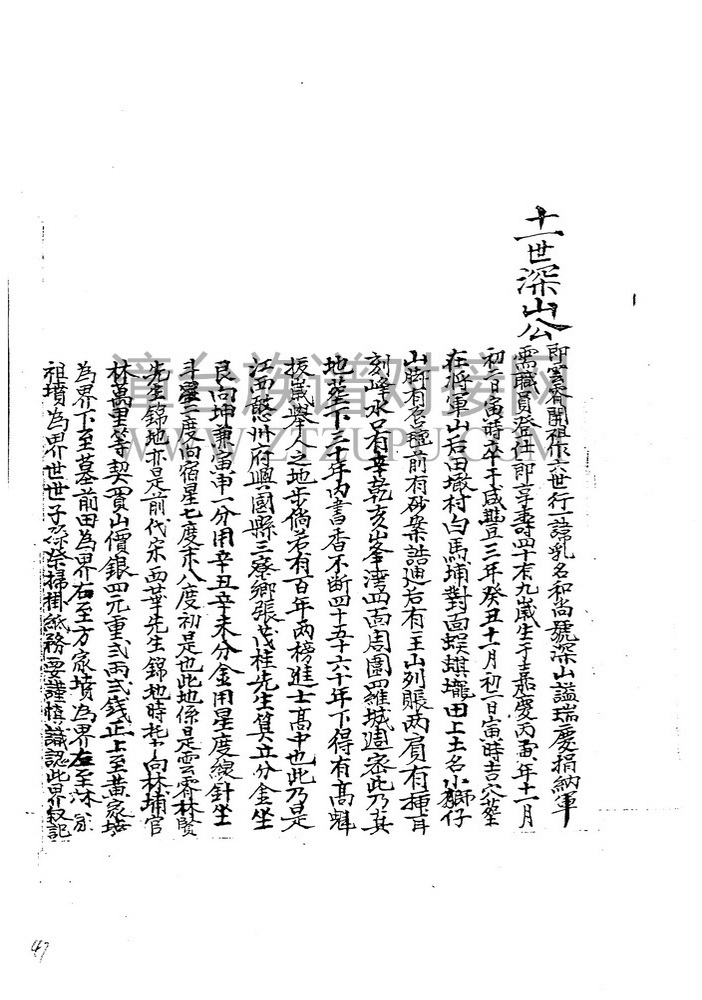 十一世深山公
即雲霄開祖六世行一諱乳名和尚號深山謚瑞慶捐納軍
需職員登仕郎享壽四十有九歲生于嘉慶丙寅年十一月
初一日寅時卒于咸豐三年癸丑十一月初一日寅時吉穴塟
在將軍山后田墩村白馬埔對面蜈蜞壠田上土名小獅仔
山勝有名穴前有砂案詰迎后有主山列賬两肩有揷耳
刻峰水口有辛乾亥出峯湾四面周圍羅城週密此乃真
地塟下三十年内書香不断四十五十六十年下得有髙魁
拔歲舉人之地步倘若有百年两榜進士髙中也此乃是
江西赣州府興國縣三寮鄉張茂桂先生算立分金坐
艮向坤兼寅申一分用辛丑辛未分金用星度線針坐
斗星二度向宿星七度末八度初是也此地係是雲霄林賢
先生錦地亦是前代宋西華先生錦地時托向林埔官
林萬里等契買山價銀四元重弍两弍錢正上至黄家墳
為界下至墓前田為界右至方家墳為界左至 家
祖墳為界世世子孫祭掃掛紙務要謹慎識認此界叙記
1
47
澶台族谱对接网
WWW.ZTZUPU.COM